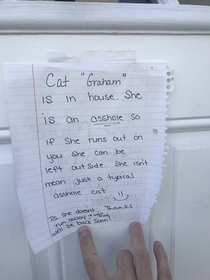 Cat "Graham"
is in house. She
is an asshole so
if she runs out on
you she can be
left outside. She isn't
mean just a typical
asshole cat :)
Ps she doesn't Thanks
run away
we'll be back soon!